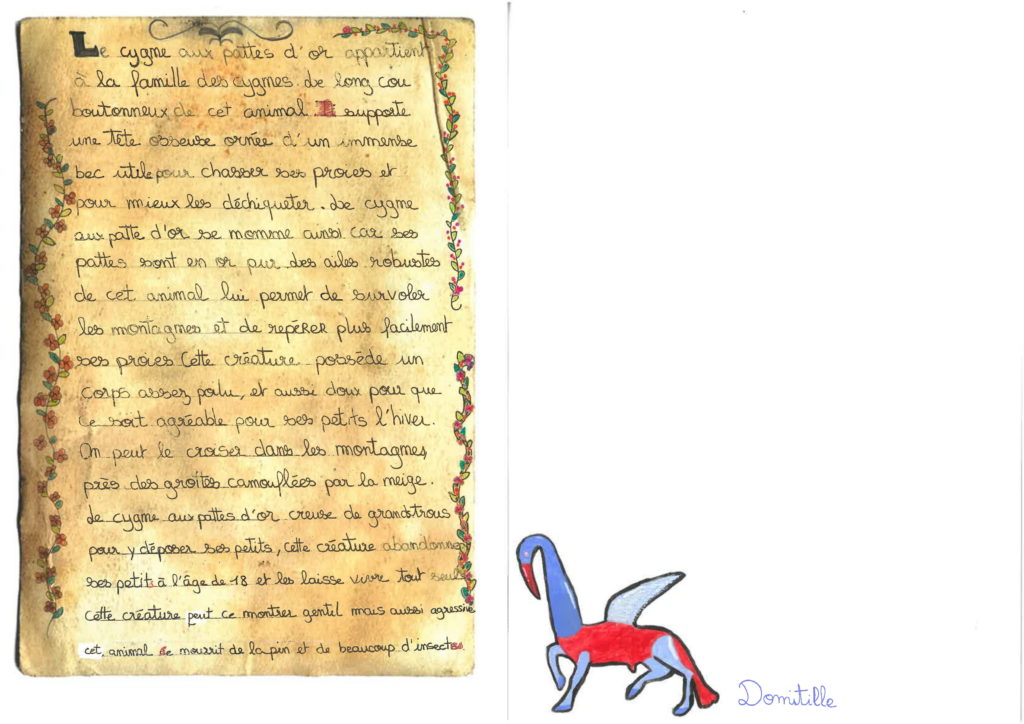 Le cygne aux pattes d'or appartient
à la famille des cygnes. de long cou
boutonneux de cet animal. supporte
une tête osseuse ornée d'un immense
bec utile pour chasser ses proies et
pour mieux les déchiqueter. Le cygne
aux patte d'or se nomme ainsi car ses
pattes sont en or pur des ailes robustes
de cet animal lui permet de survoler
les montagnes et de repérer plus facilement
ses proies Cette créature possède un
corps assez poilu, et aussi doux pour que
ce soit agréable pour ses petits l'hiver.
On peut le croiser dans les montagnes
près des groites camouflées par la neige.
Le cygne aux pattes d'or creuse de grands trous
pour y déposer ses petits, cette créature abandonnes
ses petit à l'âge de 18 et les laisse vivre tout seuls
Cette créature peut ce montrer gentil mais aussi agressive
cet, animal se nourrit de lapin et de beaucoup d'insectes.
Domitille